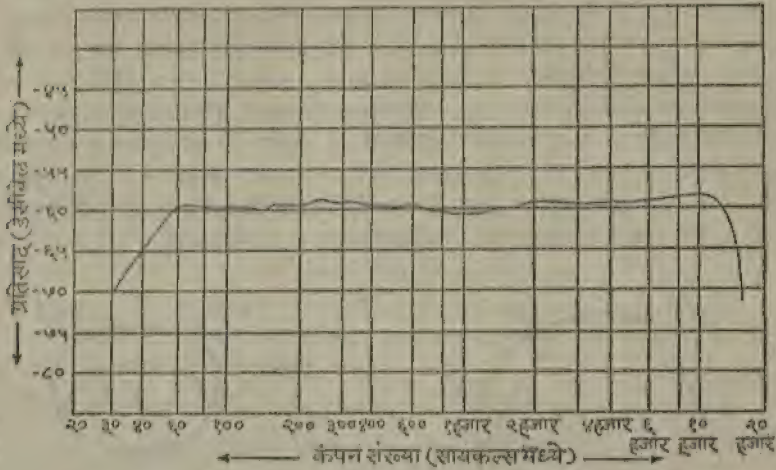 प्रतिसाद (डेसीबेल मध्ये)
-४५
-५०
-५५
-६०
-६५
-७०
-७५
-८०
२० ३० ४० ६० १०० २०० ३०० ४०० ६०० १हजार २हजार ४हजार ६ १० २०
हजार हजार हजार
कंपन संख्या (सायकल्समध्ये)